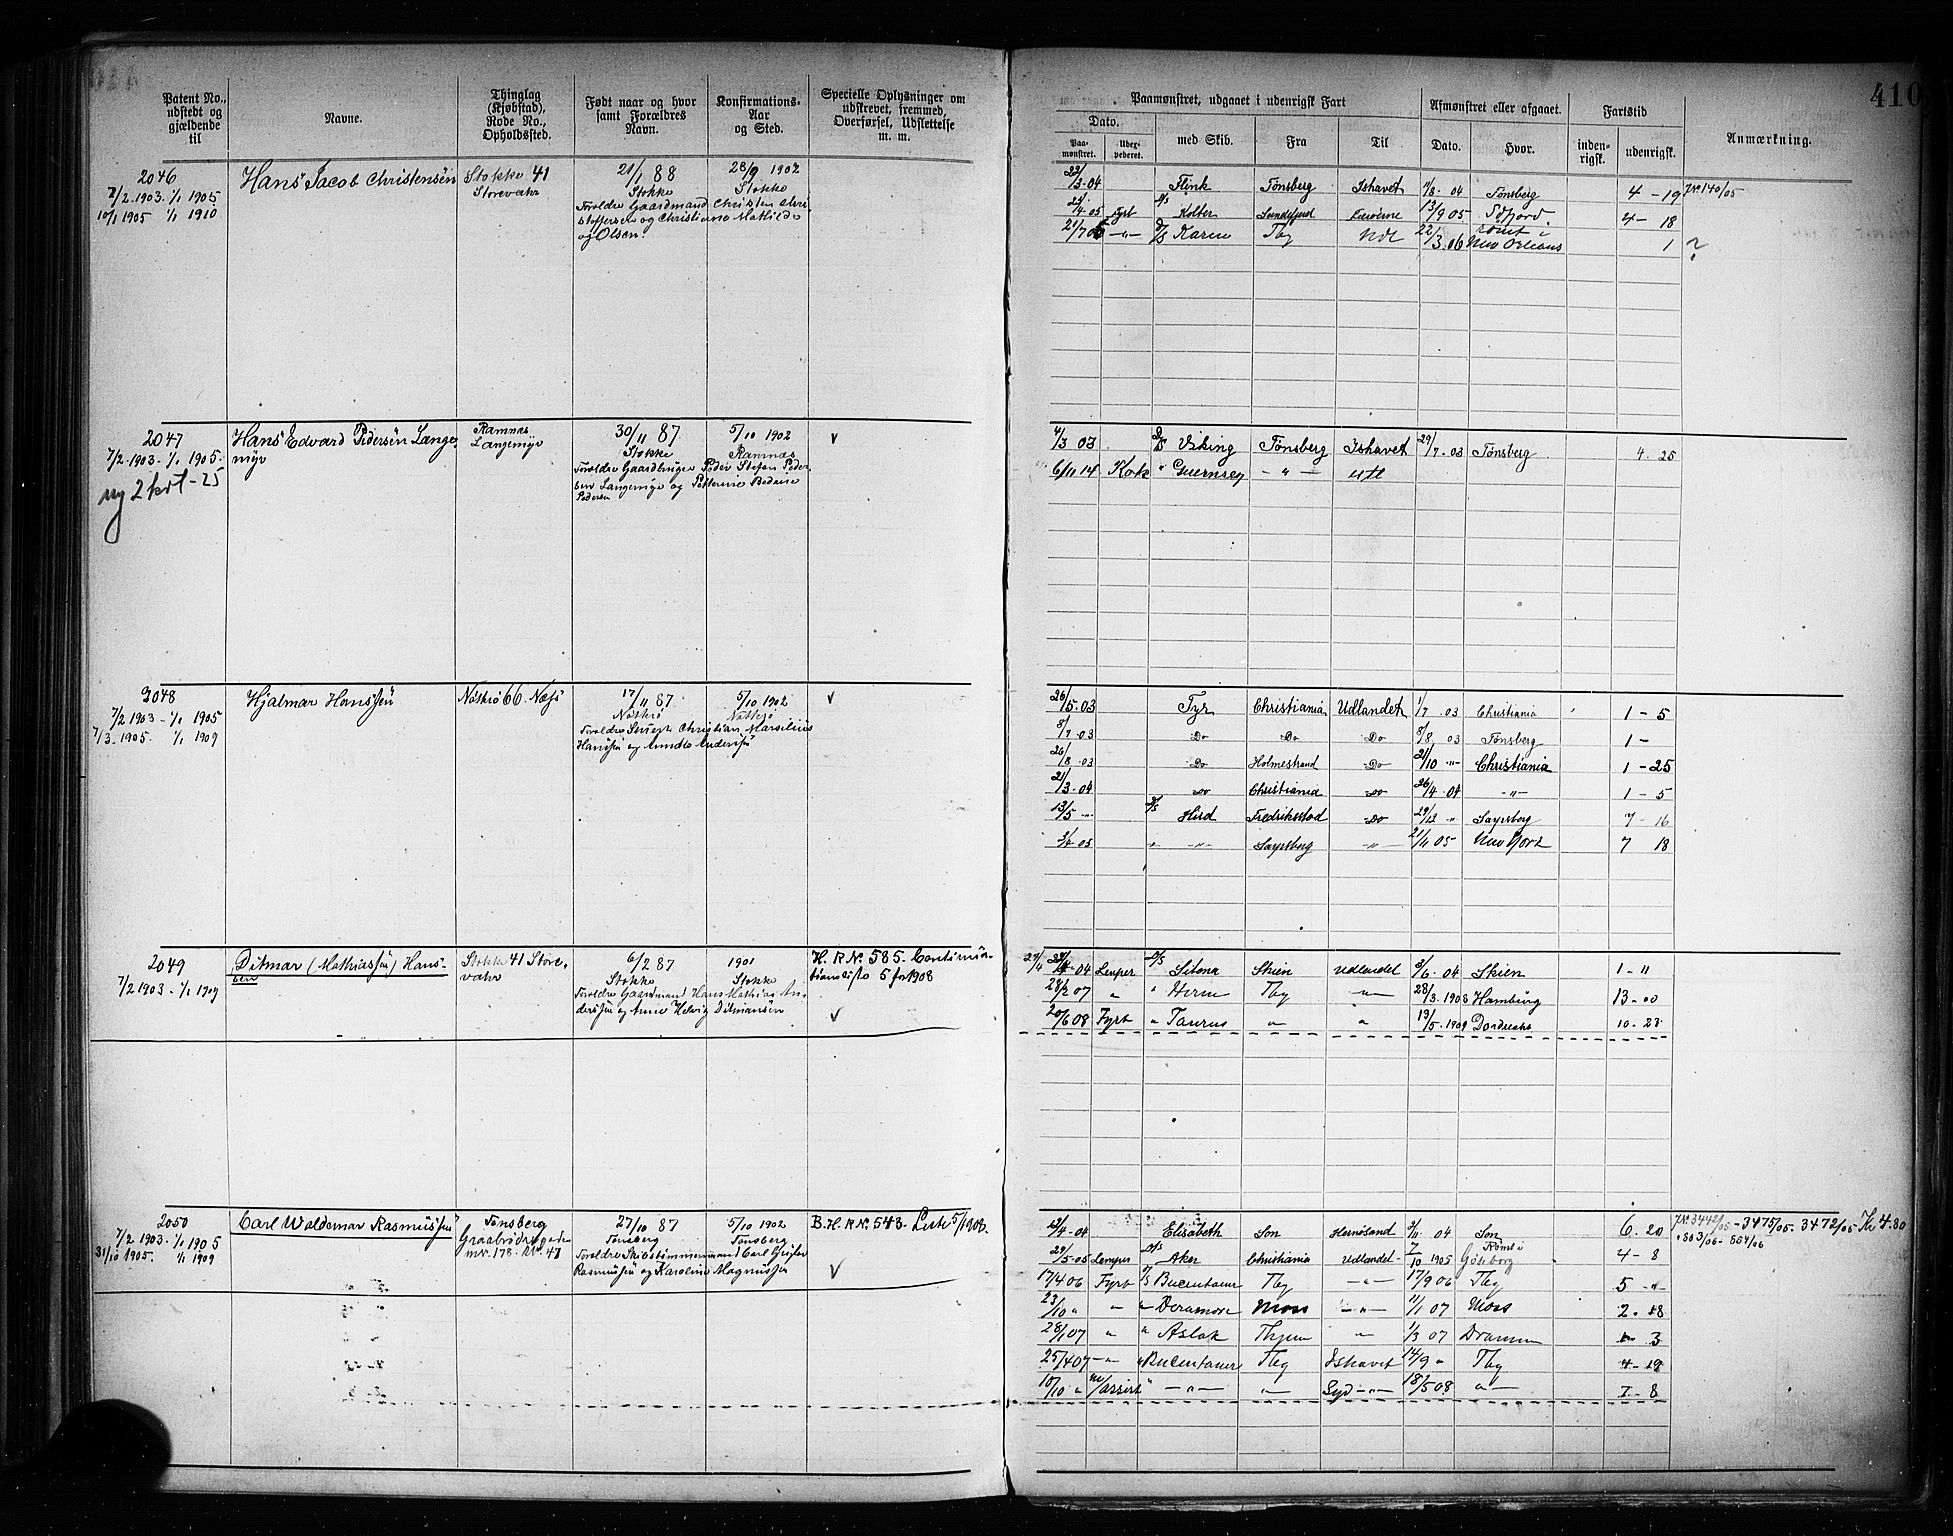 410
Patent No., udstedt og gjældende til
Navne.
Thinglag (Kjøbstad), Rode No., Opholdssted.
Født naar og hvor samt Forældres Navn.
Konfirmations- Aar og Sted.
Specielle Oplysninger om udskrevet, fremmed, Overførsel, Udslettelse m. m.
Paamønstret, udgaaet i udenrigsk Fart
Afmønstret eller afgaaet.
Fartstid
Anmærkning.
Dato.
med Skib.
Fra
Til
Dato.
Hvor.
inden- rigsk.
udenrigsk.
Paa- mønstret.
2046
7/2 1903. 1/1 1905
10/1 1905 1/1 1910
Hans Jacob Christensen
Stokke 41
Storevahr
21/1 88
Stokke
28/9 1902
Stokke
Foreldre Gaardmand Christen
stoffersen og Christiane Mathilde
og Olsen.
/3-04 Flink Tønsberg Ishavet /8-04 Tønsberg 4-19 J.N. 140/05
/4-05 Fyrb Kolter Sandefjord 13/9 05 4-18
21/7 05 -"- D/S Karin Tbg Udl 22/3.06 rømt i New Orleans 1 ?
2047
7/2 1903. 1/1 1905.
ny 2 krt - 25
Hans Edvard Pedersen Lange
myr
Ramnæs
Langemyr
30/11 87
Stokke
5/10 1902
Ramnæs
Foreldre Gaardbruger Peder Stefen Peder
sen Langemyr og Petterine
Pedersen
4/3 03 D/S Viking Tønsberg Ishavet 29/7-03 Tønsberg 4-25
6/11 14 Kok " Guernsey -"- utl
2048
7/2 1903 - 1/1 1905
7/3 1905. 1/1 1909
Hjalmar Hanssen
Nøtterø 66. Næs
17/11 87
Nøtterø
5/10 1902
Nøtterø
Foreldre Christian Marselius
Hanssen og Anderssen
26/5-03 Tyr Christiania Udlandet 1/7-03 Christiania 1-5
8/7-03 Do Do Do 8/8 03 Tønsberg 1-
26/8-03 Do Holmestrand Do 21/10 -"- Christiania 1-25
21/3-04 Do Christiania Do 26/4-04 -"- 1-5
13/5 -"- D/S Hird Fredriksstad Do 29/12 " Sarpsborg 7-16
3/4-05 " -"- Sarpsborg -"- 21/11 05 New York 7 18
2049
7/2 1903 - 1/1 1909
Ditmar (Mathiassen) Hans-
sen
Stokke 41 Store-
vahr
6/2 87
Stokke
1901
Stokke
Foreldre Gaardmand Hans Mathias An-
derssen og Anne Helvig Ditmansen
H. R No. 585. Continua-
5 for 1908
-04 Lemper D/S Sitona Skien Udlandet 3/6-04 Skien 1-"
28/2 07 " " Herm Tbg -"- 28/3.1908 Hamburg 13-00
20/6 08 Fyrb " Taurus " " 13/5-1909 Dordrecht 10-23
2050
7/2 1903 - 1/1 1905
31/10 1905. 1/1 1909
Carl Waldemar Rasmussen
Tønsberg
Graabrødregaden
m No. 178. R No. 41
27/10 87
Tønsberg
5/10 1902
Tønsberg
Foreldre Skibstømmermand Carl
Rasmussen og Karoline Magnussen
B. H. R No. 543. Liste 5/1908.
12/4-04 Elisabeth Son Hernøsand 3/11 04 Son 6.20 J.N. 3442/05 - 3475/05. 3472/05 Kr 4.80
" 803/06 - 804/06
29/5-05 Lemper D/S Aker Christiania Udlandet 7/10 1905 Rømt i Göteborg 4-8
17/4 06 Fyrb D/S Bucentaur Tbg -"- 17/9 06 Tbg 5 "
23/10 " " " Deramore Moss -"- 11/1 07 Moss 2-18
28/1 07 " " Aslak Thjem " 1/3 07 Drammen 1-3
25/4 07 -"- " Bucentaur Tbg Ishavet 14/9 " Tbg 4-19
10/10 " m/assist " -"- " Syd -"- 18/5 08 -"- 7-8